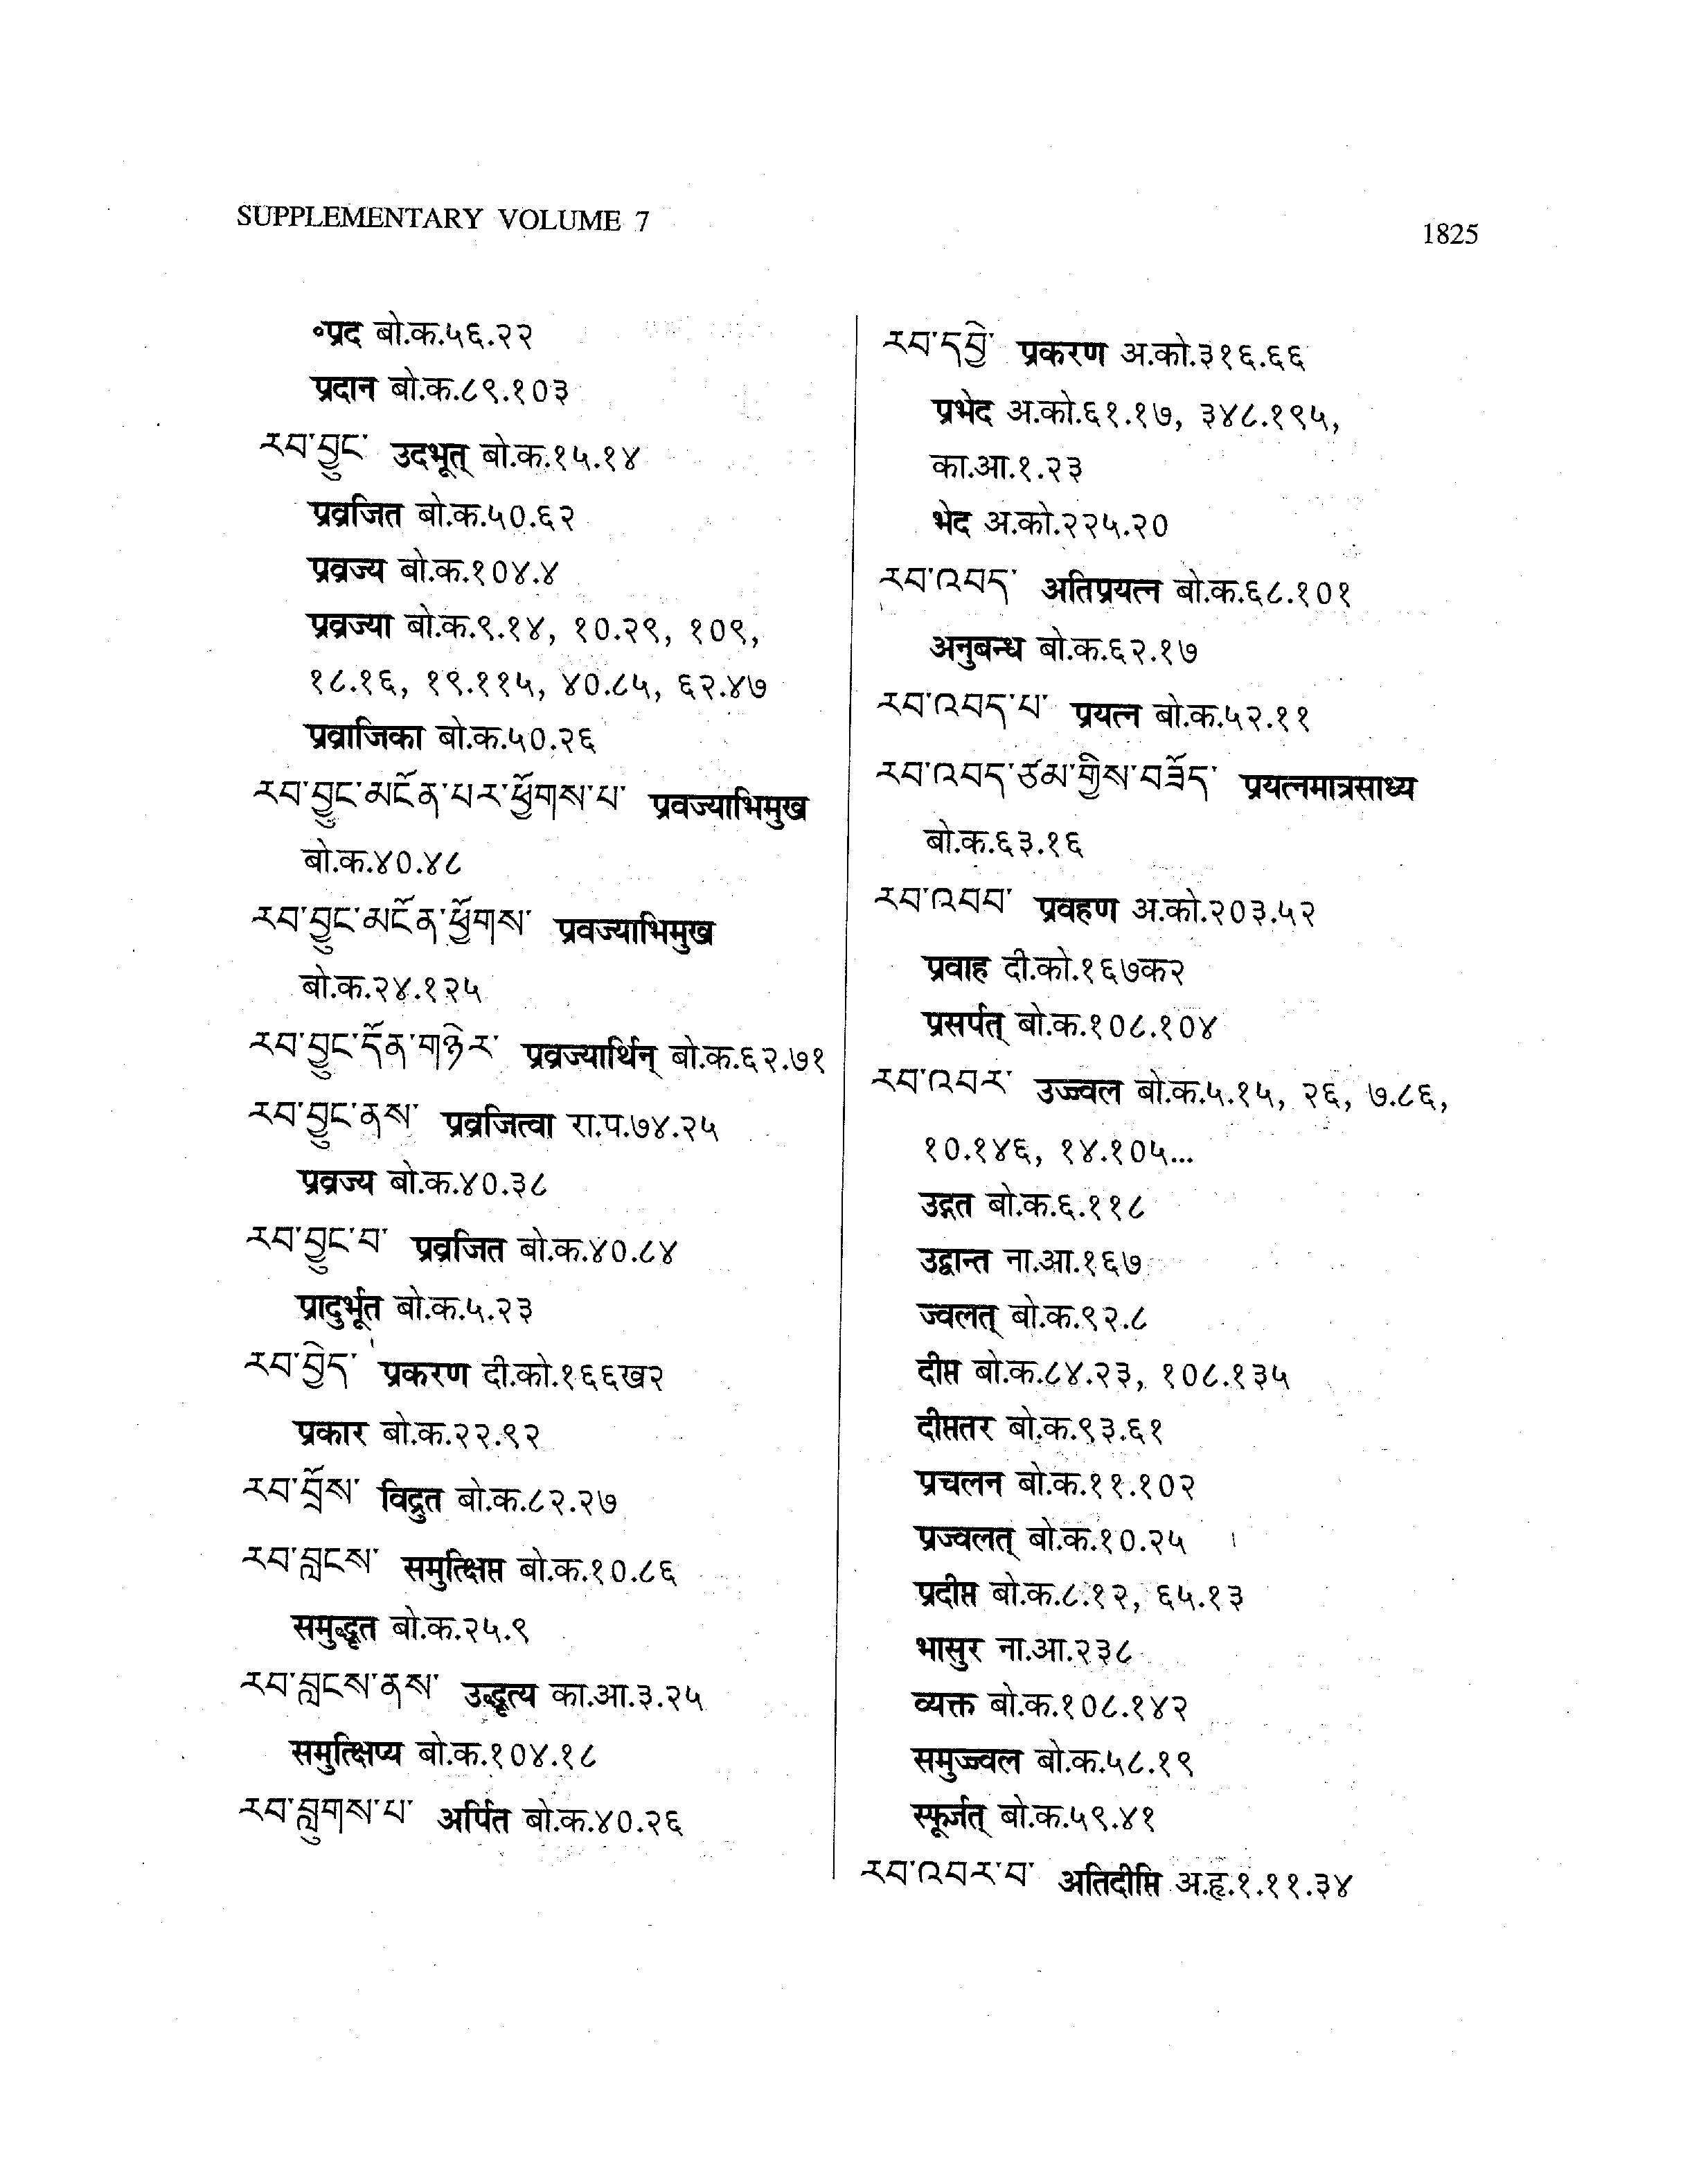 SUPPLEMENTARY VOLUME 7
1825
॰प्रद बो.क.५६.२२
प्रदान बो.क.८९.१०३
རབ་བྱུང་ उदभूत् बो.क.१५.१४
प्रव्रजित बो.क.५०.६२
प्रव्रज्य बो.क.१०४.४
प्रव्रज्या बो.क.९.१४, १०.२९, १०९,
१८.१६, १९.११५, ४०.८५, ६२.४७
प्रव्राजिका बो.क.५०.२६
རབ་བྱུང་མངོན་པར་ཕྱོགས་པ་ प्रवज्याभिमुख
बो.क.४०.४८
རབ་བྱུང་མངོན་ཕྱོགས་ प्रवज्याभिमुख
बो.क.२४.१२५
རབ་བྱུང་དོན་གཉེར་ प्रव्रज्यार्थिन् बो.क.६२.७१
རབ་བྱུང་ནས་ प्रव्रजित्वा रा.प.७४.२५
प्रव्रज्य बो.क.४०.३८
རབ་བྱུང་བ་ प्रव्रजित बो.क.४०.८४
प्रादुर्भूत बो.क.५.२३
རབ་བྱེད་ प्रकरण दी.को.१६६ख२
प्रकार बो.क.२२.९२
རབ་བྲོས་ विद्रुत बो.क.८२.२७
རབ་བླངས་ समुत्क्षिप्त बो.क.१०.८६
समुद्धृत बो.क.२५.९
རབ་བླངས་ནས་ उद्धृत्य का.आ.३.२५
समुत्क्षिप्य बो.क.१०४.१८
རབ་བླུགས་པ་ अर्पित बो.क.४०.२६
རབ་དབྱེ་ प्रकरण अ.को.३१६.६६
प्रभेद अ.को.६१.१७, ३४८.१९५,
का.आ.१.२३
भेद अ.को.२२५.२०
རབ་འབད་ अतिप्रयत्न बो.क.६८.१०१
अनुबन्ध बो.क.६२.१७
རབ་འབད་པ་ प्रयत्न बो.क.५२.११
རབ་འབད་ཙམ་གྱིས་བཟོད་ प्रयत्नमात्रसाध्य
बो.क.६३.१६
རབ་འབབ་ प्रवहण अ.को.२०३.५२
प्रवाह दी.को.१६७क२
प्रसर्पत् बो.क.१०८.१०४
རབ་འབར་ उज्ज्वल बो.क.५.१५, २६, ७.८६,
१०.१४६, १४.१०५...
उद्गत बो.क.६.११८
उद्वान्त ना.आ.१६७
ज्वलत् बो.क.९२.८
दीप्त बो.क.८४.२३, १०८.१३५
दीप्ततर बो.क.९३.६१
प्रचलन बो.क.११.१०२
प्रज्वलत् बो.क.१०.२५
प्रदीप्त बो.क.८.१२, ६५.१३
भासुर ना.आ.२३८
व्यक्त बो.क.१०८.१४२
समुज्ज्वल बो.क.५८.१९
स्फूर्जत् बो.क.५९.४१
རབ་འབར་བ་ अतिदीप्ति अ.हृ.१.११.३४